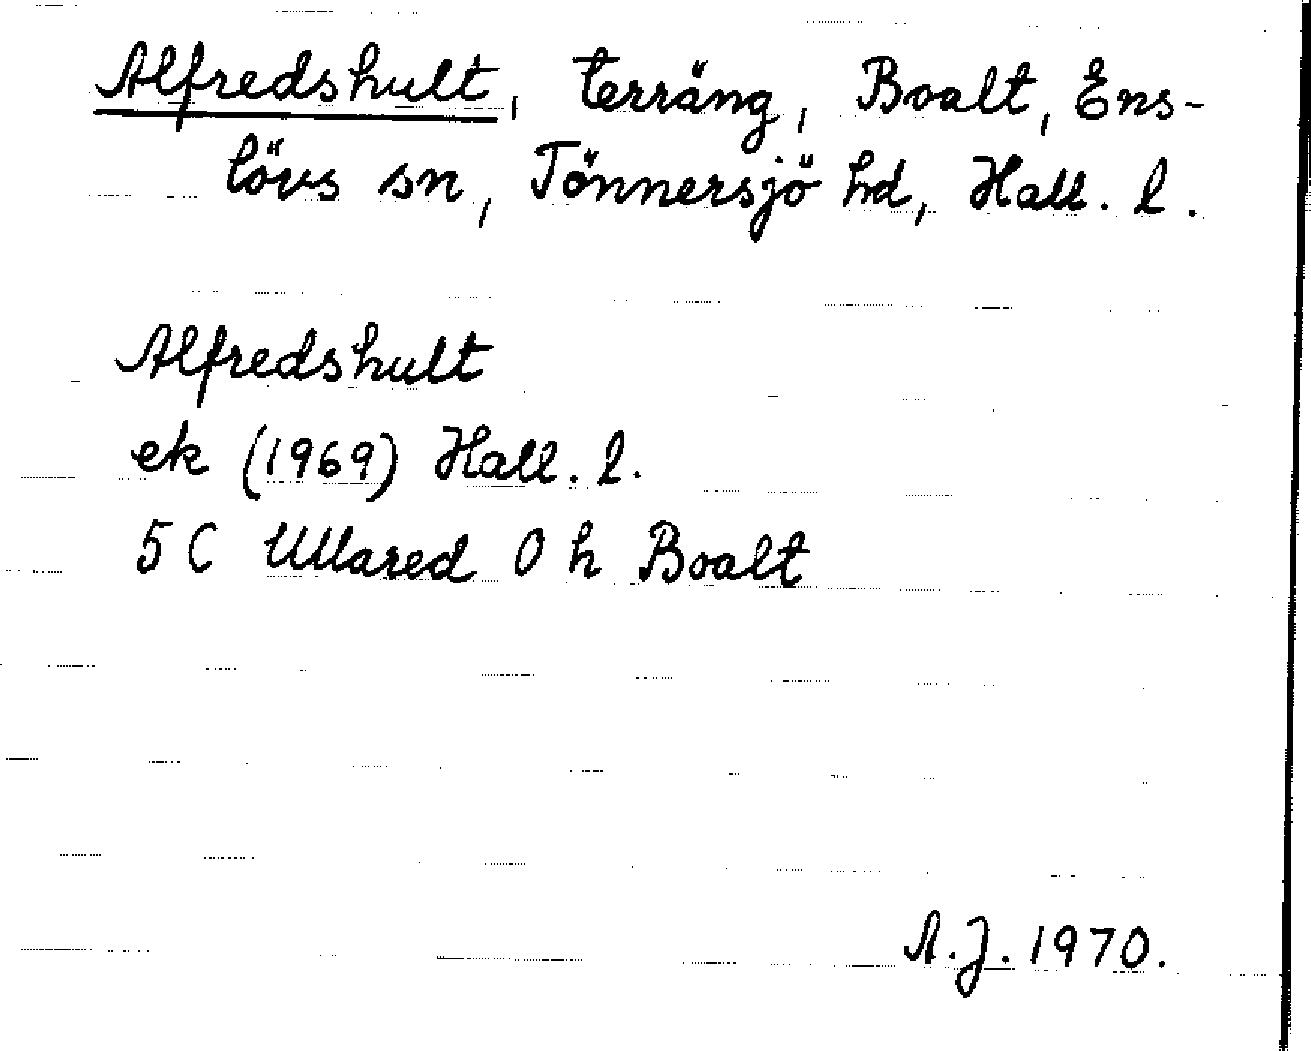 Alfredshult, terräng, Boalt, Ens-
lövs sn, Tönnersjö hd, Hall. l.
Alfredshult
ek (1969) Hall. l.
5C Ullared 0 h Boalt
A.J. 1970.